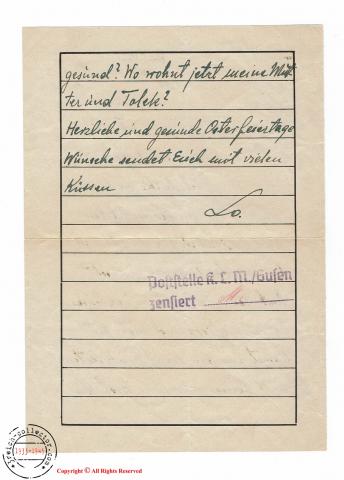 gesund? Wo wohnt jetzt meine Mut
ter und Tolek?
Herzliche und gesunde Osterfeiertage
Wünsche sendet Euch mit vielen
Küssen
Lo.
Poststelle K. L. M./Gusen
zensiert
3reich-collector.com
1933-1945
Copyright © All Rights Reserved